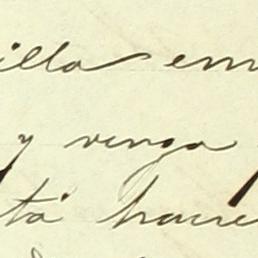 illa em
y venga
tá hacie